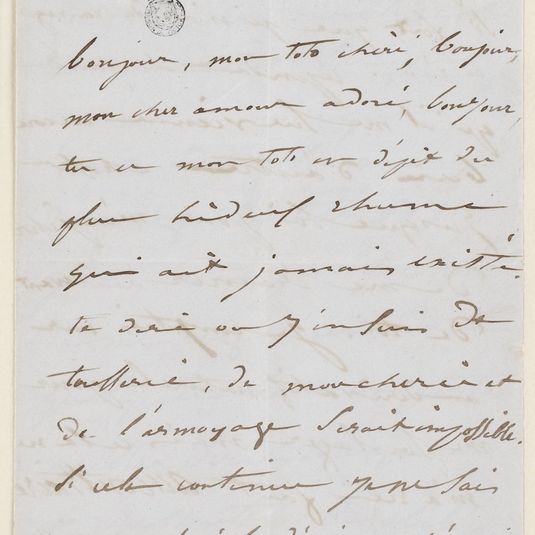 bonjour, mon toto chéri, bonjour,
mon cher amour adoré, bonjour,
tu es mon toto en dépit du
plus hideux rhume
qui ait jamais existé.
te dire où j'en suis de
tousserie, de moucherie et
de larmoyage serait impossible.
Si cela continue je ne sais